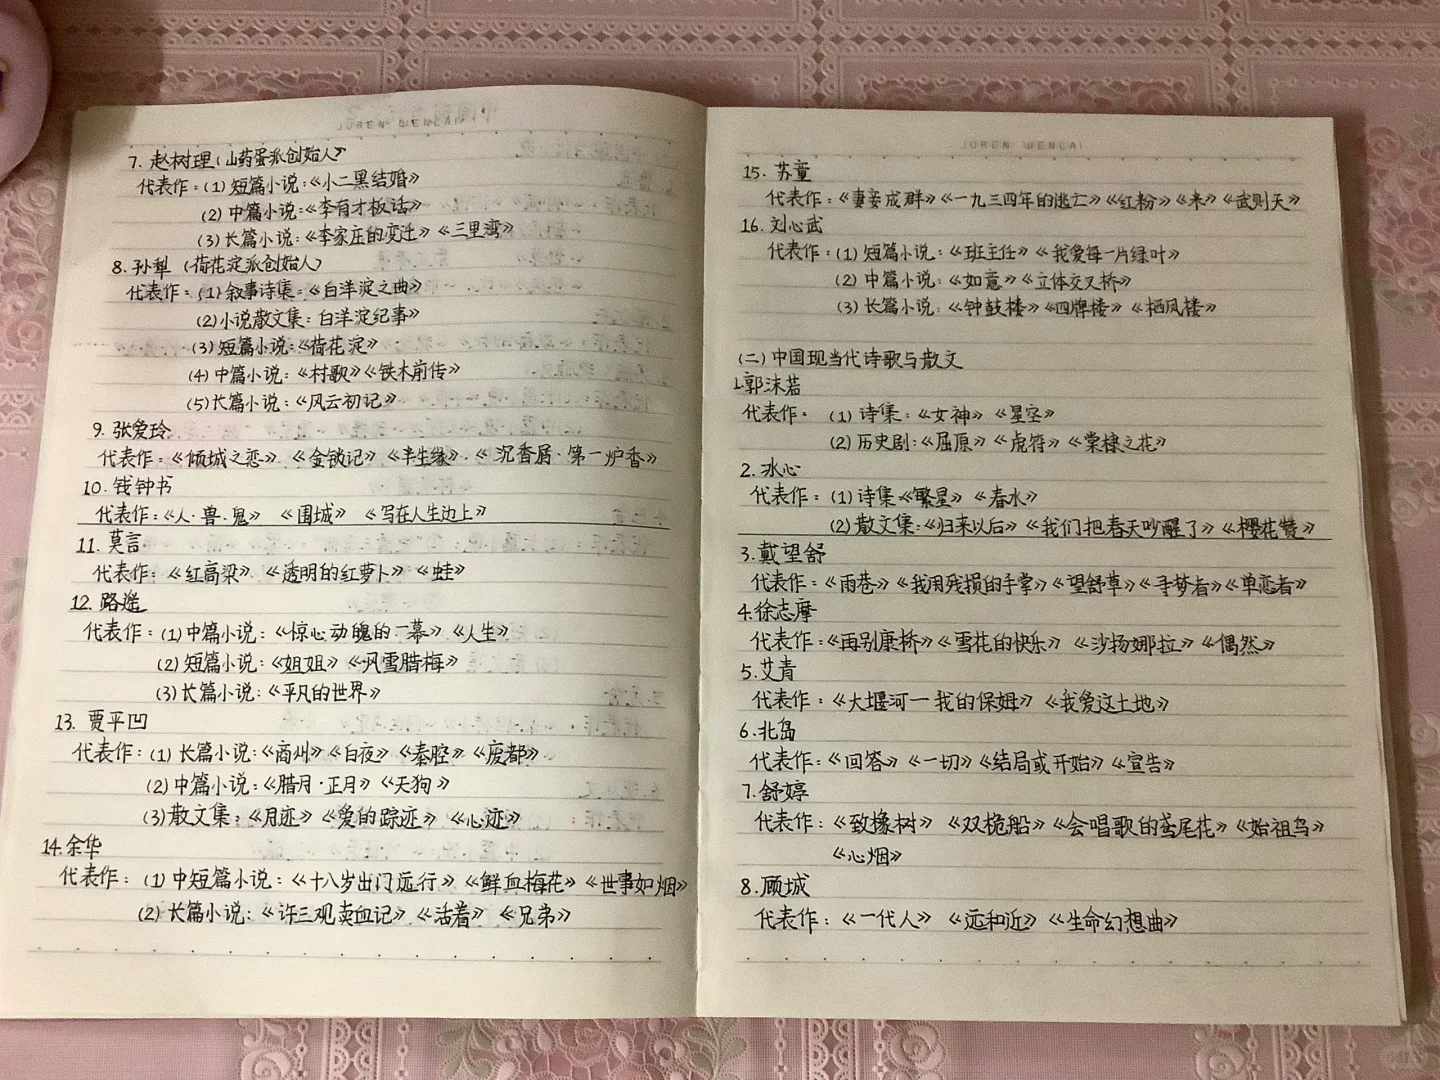 JUREN WENCAI
7. 赵树理(山药蛋派创始人)
代表作:(1)短篇小说:《小二黑结婚》
(2)中篇小说:《李有才板话》
(3)长篇小说:《李家庄的变迁》《三里湾》
8. 孙犁 (荷花淀派创始人)
代表作:(1)叙事诗集:《白洋淀之曲》
(2)小说散文集:白洋淀纪事》
(3)短篇小说:《荷花淀》
(4)中篇小说:《村歌》《铁木前传》
(5)长篇小说:《风云初记》
9. 张爱玲
代表作:《倾城之恋》《金锁记》《半生缘》《沉香屑·第一炉香》
10. 钱钟书
代表作:《人·兽·鬼》《围城》《写在人生边上》
11. 莫言
代表作:《红高粱》《透明的红萝卜》《蛙》
12. 路遥
代表作:(1)中篇小说:《惊心动魄的一幕》《人生》
(2)短篇小说:《姐姐》《风雪腊梅》
(3)长篇小说:《平凡的世界》
13. 贾平凹
代表作:(1)长篇小说:《商州》《白夜》《秦腔》《废都》
(2)中篇小说:《腊月·正月》《天狗》
(3)散文集:《月迹》《爱的踪迹》《心迹》
14. 余华
代表作:(1)中短篇小说:《十八岁出门远行》《鲜血梅花》《世事如烟》
(2)长篇小说:《许三观卖血记》《活着》《兄弟》
JUREN WENCAI
15. 苏童
代表作:《妻妾成群》《一九三四年的逃亡》《红粉》《米》《武则天》
16. 刘心武
代表作:(1)短篇小说:《班主任》《我爱每一片绿叶》
(2)中篇小说:《如意》《立体交叉桥》
(3)长篇小说:《钟鼓楼》《四牌楼》《栖凤楼》
(二)中国现当代诗歌与散文
1.郭沫若
代表作:(1)诗集:《女神》《星空》
(2)历史剧:《屈原》《虎符》《棠棣之花》
2. 冰心
代表作:(1)诗集《繁星》《春水》
(2)散文集:《归来以后》《我们把春天吵醒了》《樱花赞》
3. 戴望舒
代表作:《雨巷》《我用残损的手掌》《望舒草》《寻梦者》《单恋者》
4. 徐志摩
代表作:《再别康桥》《雪花的快乐》《沙扬娜拉》《偶然》
5. 艾青
代表作:《大堰河一我的保姆》《我爱这土地》
6. 北岛
代表作:《回答》《一切》《结局或开始》《宣告》
7. 舒婷
代表作:《致橡树》《双桅船》《会唱歌的鸢尾花》《始祖鸟》
《心烟》
8. 顾城
代表作:《一代人》《远和近》《生命幻想曲》